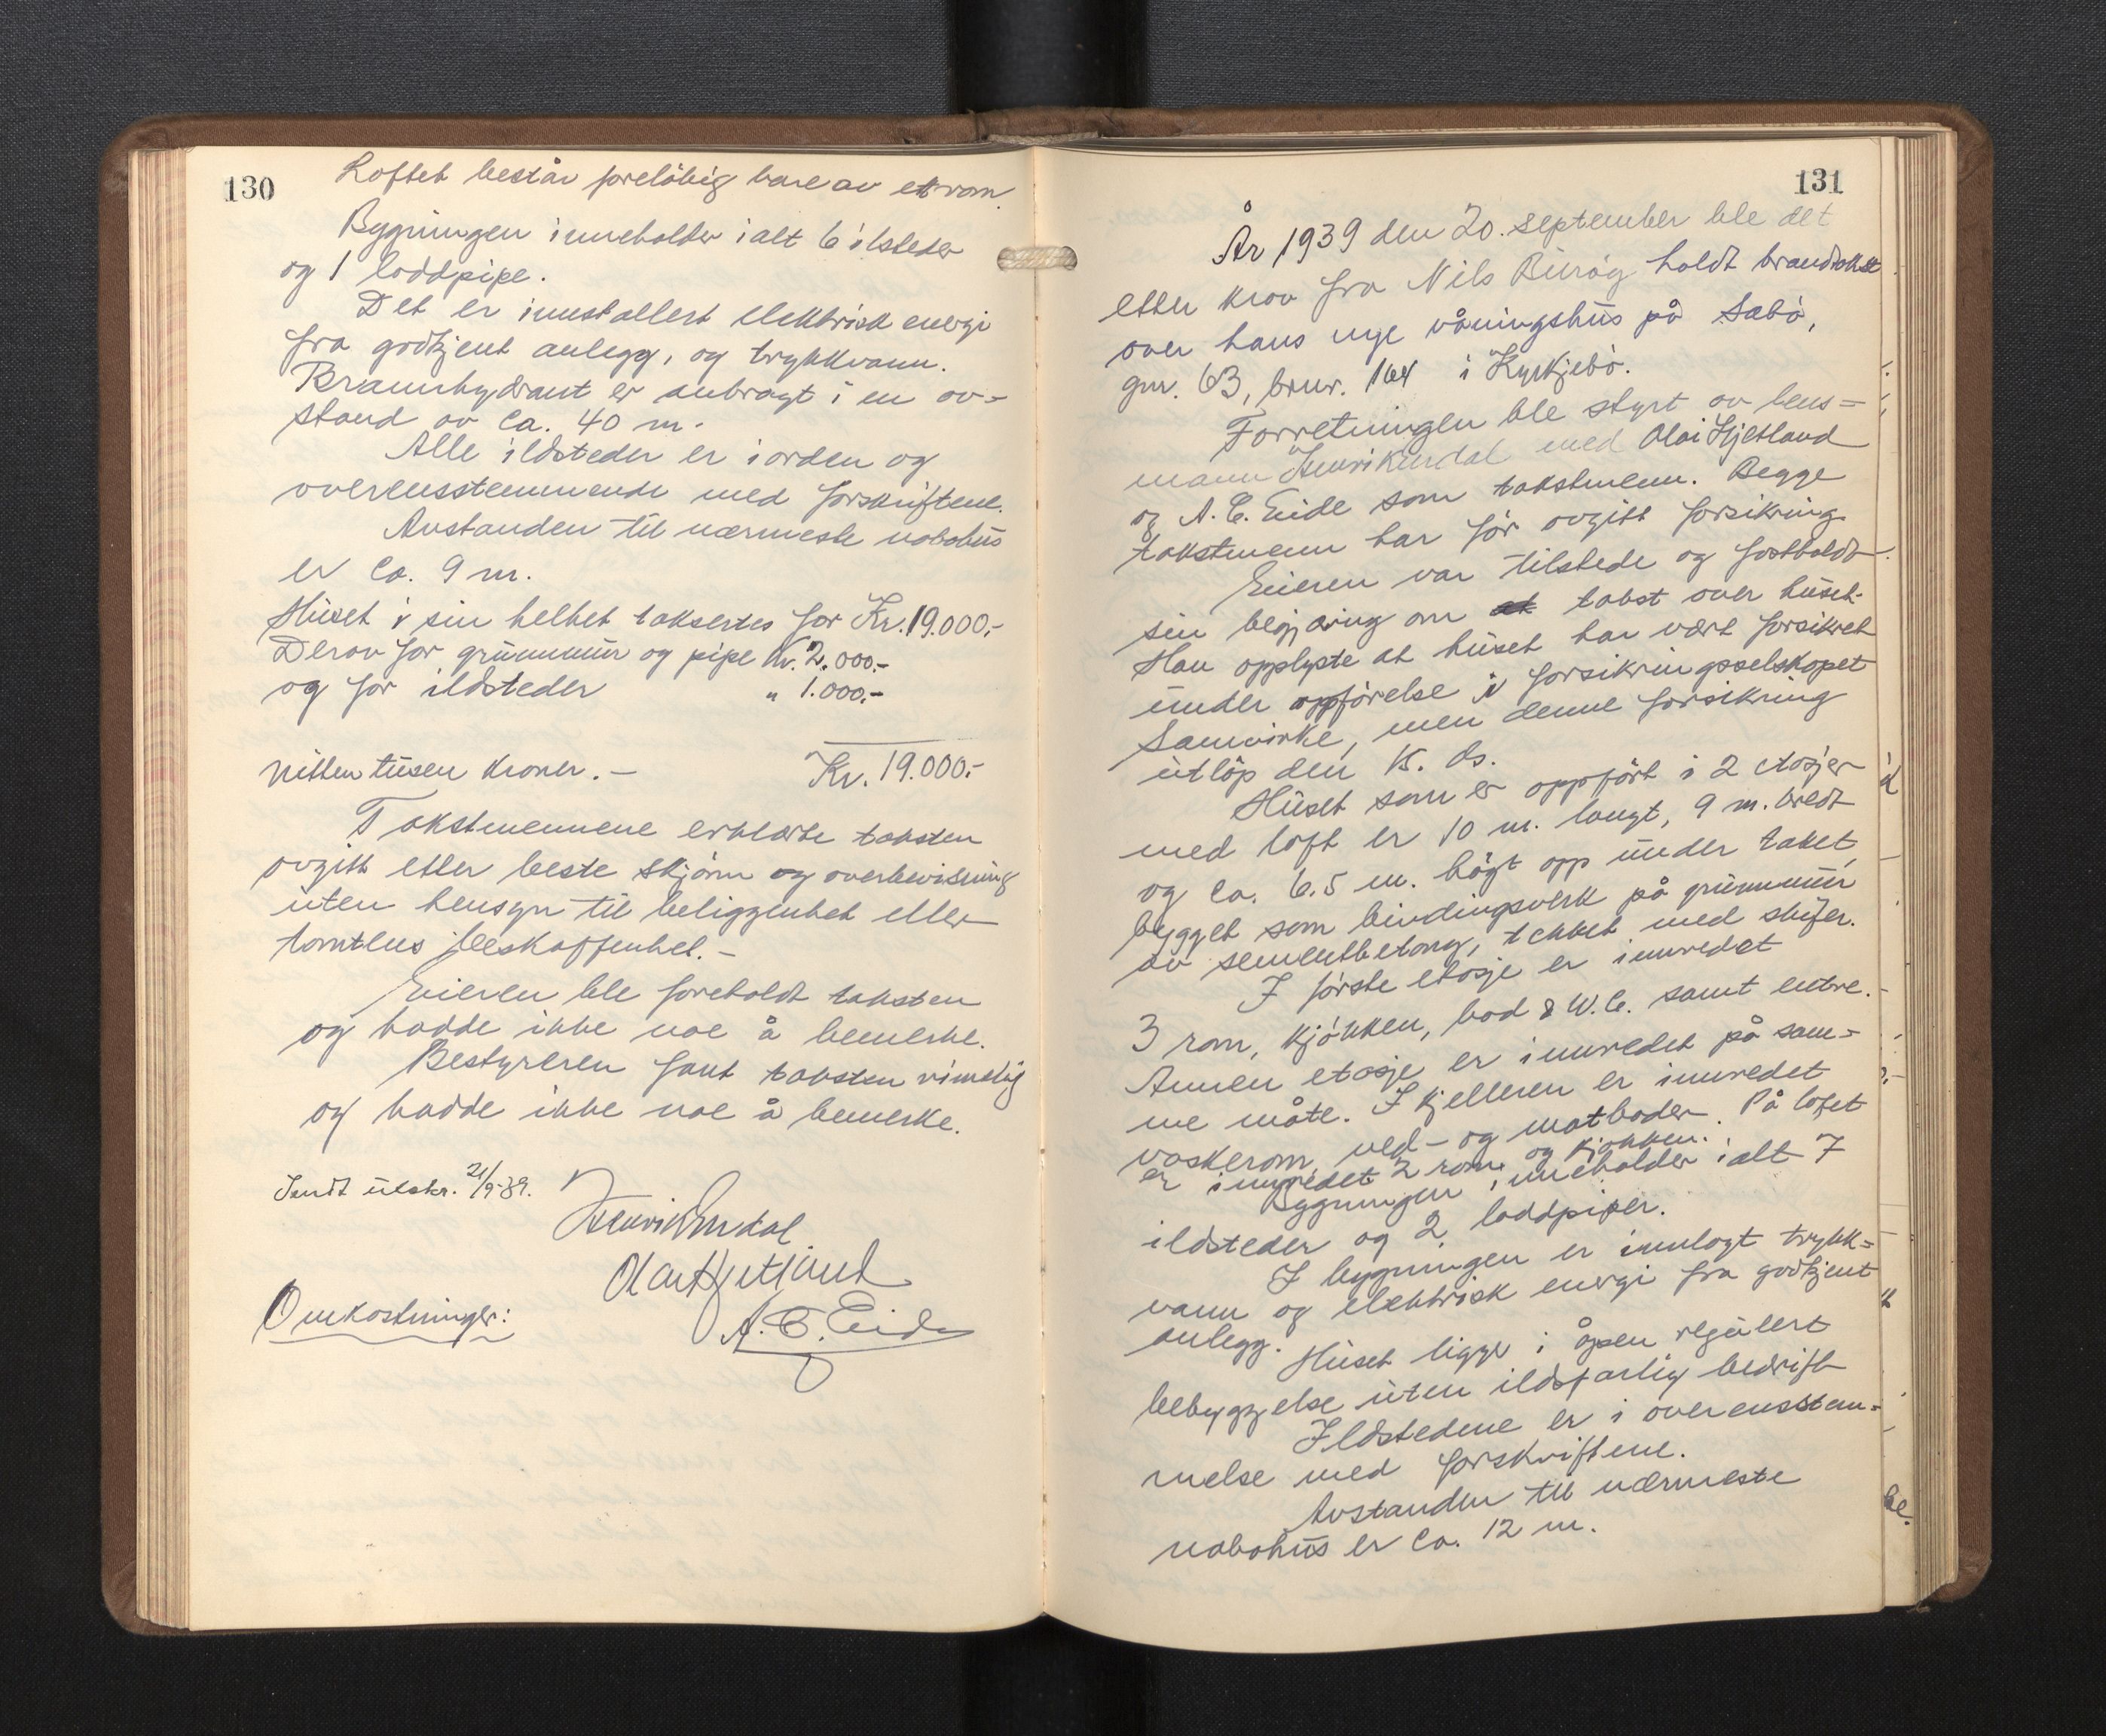 130
Loftet består foreløbig bare av ett rom.
Bygningen inneholder ialt 6 ilsteder
og 1 loddpipe.
Det er innstallert elektrisk energi
fra godkjent anlegg, og trykkvann.
Brannhydrant er anbragt i en av-
stand av ca. 40 m.
Alle ildsteder er i orden og
overensstemmende med forskriftene.
Avstanden til nærmeste nabohus
er ca. 9 m.
Huset i sin helhet takseres for Kr. 19.000,-
Derav for grunnmur og pipe kr. 2.000.-
og for ildsteder " 1.000.-
nitten tusen kroner. - Kr. 19.000.-
Takstmennene erklærte taksten
avgitt etter beste skjønn og overbevisning
uten hensyn til beliggenhet eller
tomtens beskaffenhet. -
Eieren ble foreholdt taksten
og hadde ikke noe å bemerke.
Bestyreren fant taksten rimelig
og hadde ikke noe å bemerke.
Sendt utskr. 21/9-39.
Henrik Endal
Olai Hjetland
A. C. Eide
Omkostninger:
131
År 1939 den 20. september ble det
etter krav fra Nils Burøy holdt brandtakst
over hans nye våningshus på Sabø,
gnr. 63, brnr. 164 i Kyrkjebø.
Forretningen ble styrt av lens-
mann Henrik Endal med Olai Hjetland
og A. C. Eide som takstmenn. Begge
takstmenn har før avgitt forsikring.
Eieren var tilstede og fastholdt
sin begjæring om takst over huset.
Han opplyste at huset har vært forsikret
under oppførelse i forsikringsselskapet
Samvirke, men denne forsikring
utløp den 15. ds.
Huset som er oppført i 2 etasjer
med loft er 10 m. langt, 9 m. bredt
og ca. 6.5 m. høgt opp under taket,
bygget som bindingsverk på grunnmur
av sementbetong, tekket med skifer.
I første etasje er innredet
3 rom, kjøkken, bad & W.C. samt entre.
Annen etasje er innredet på sam-
me måte. I kjelleren er innredet
vaskerom, ved- og matboder. På loftet
er innredet 2 rom og kjøkken.
Bygningen inneholder ialt 7
ildsteder og 2 loddpiper.
I bygningen er innlagt trykk-
vann og elektrisk energi fra godkjent
anlegg.
Huset ligger i åpen regulert
bebyggelse uten ildsfarlig bedrift
Ildstedene er i overensstem-
melse med forskriftene.
Avstanden til nærmeste
nabohus er ca. 12 m.